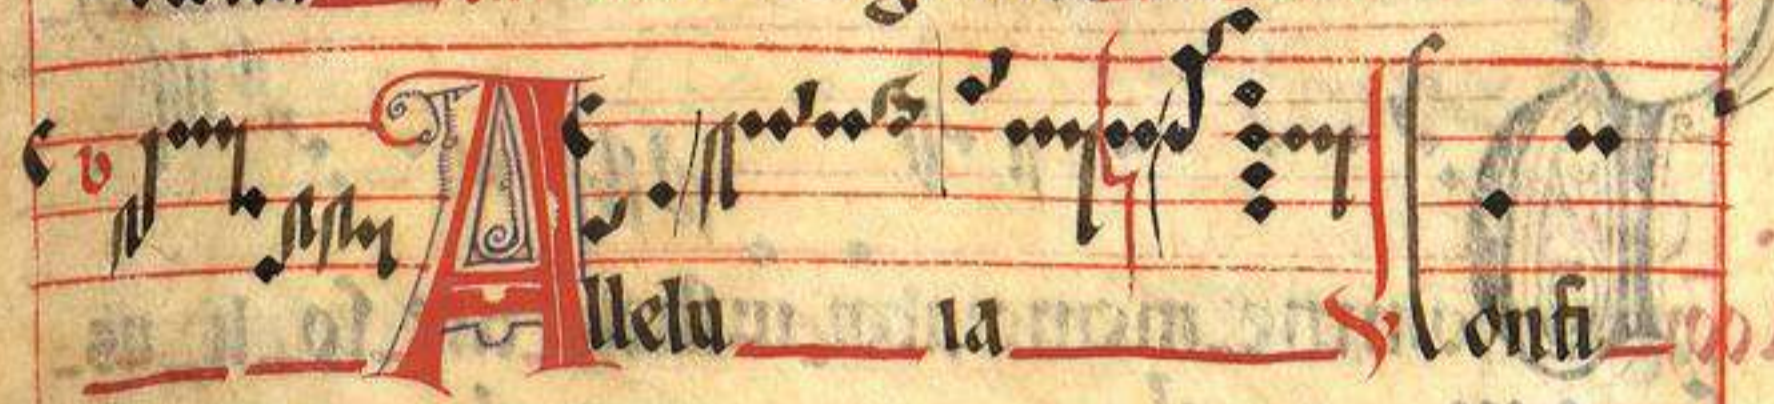 Allelu ia ℣ Confi